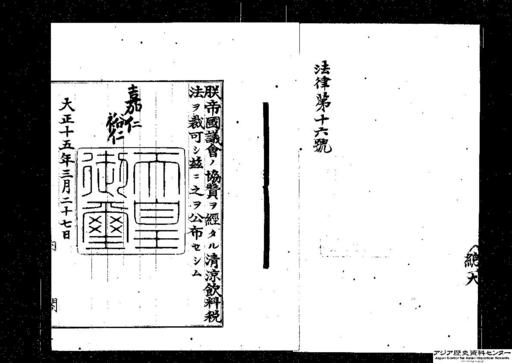 法律第十六號
朕帝國議會ノ協賛ヲ經タル清涼飲料税
法ヲ裁可シ玆ニ之ヲ公布セシム
嘉仁
裕仁
天皇
御璽
大正十五年三月二十七日
内閣
アジア歴史資料センター
Japan Center for Asian Historical Records